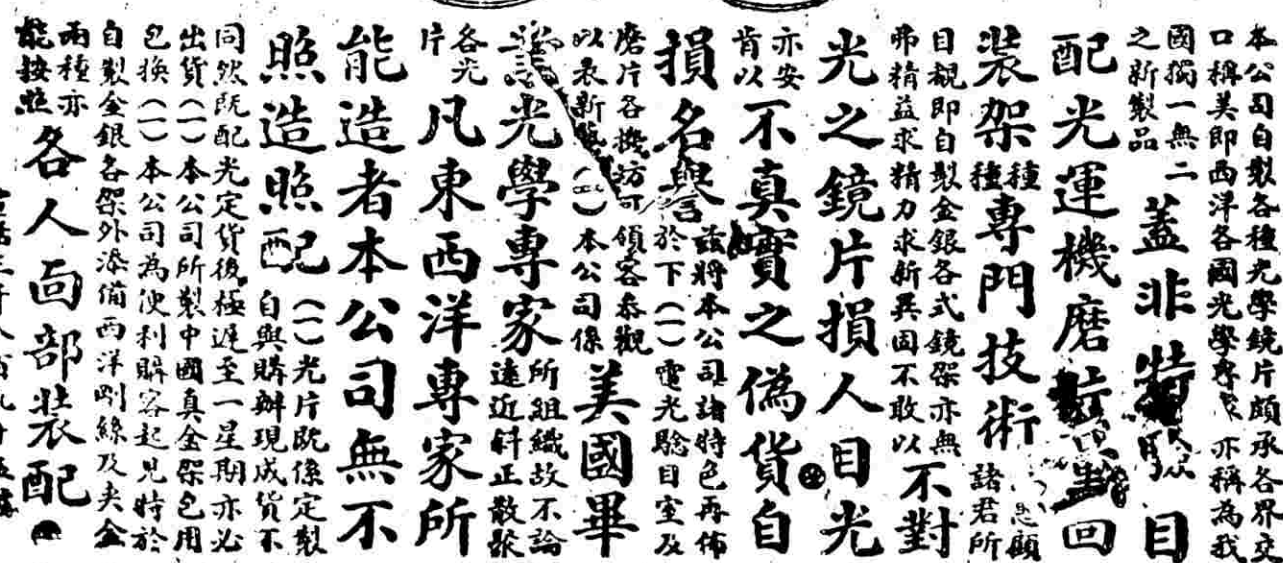 本公司自製各種光學鏡片頗承各界交
口稱美即西洋各國光學專家亦稱為我
國獨一無二
之新製品
蓋非特驗目
配光運機磨
回
裝架
種種
專門技術
顧
諸君所
目覩即自製金銀各式鏡架亦無
弗精益求精力求新異固不敢以
不對
光之鏡片損人目光
亦安
肯以
不真實之偽貨自
損名譽
茲將本公司諸特色再佈
於下(一)電光驗目室及
磨片各機訪可領客叅觀
以衣新
(二)本公司係
美國畢
業光學專家
所組織故不論
遠近斜正散聚
各光
片
凡東西洋專家所
能造者本公司無不
照造照配
(一)光片既係定製
自與購辦現成货不
同然既配光定貨後極遲至一星期亦必
出貨(一)本公司所製中國真金架包用
包換(一)本公司為便利購客起見特於
自製金銀各架外添備西洋剛絲及夾金
兩種亦
能按照
各人面部裝配